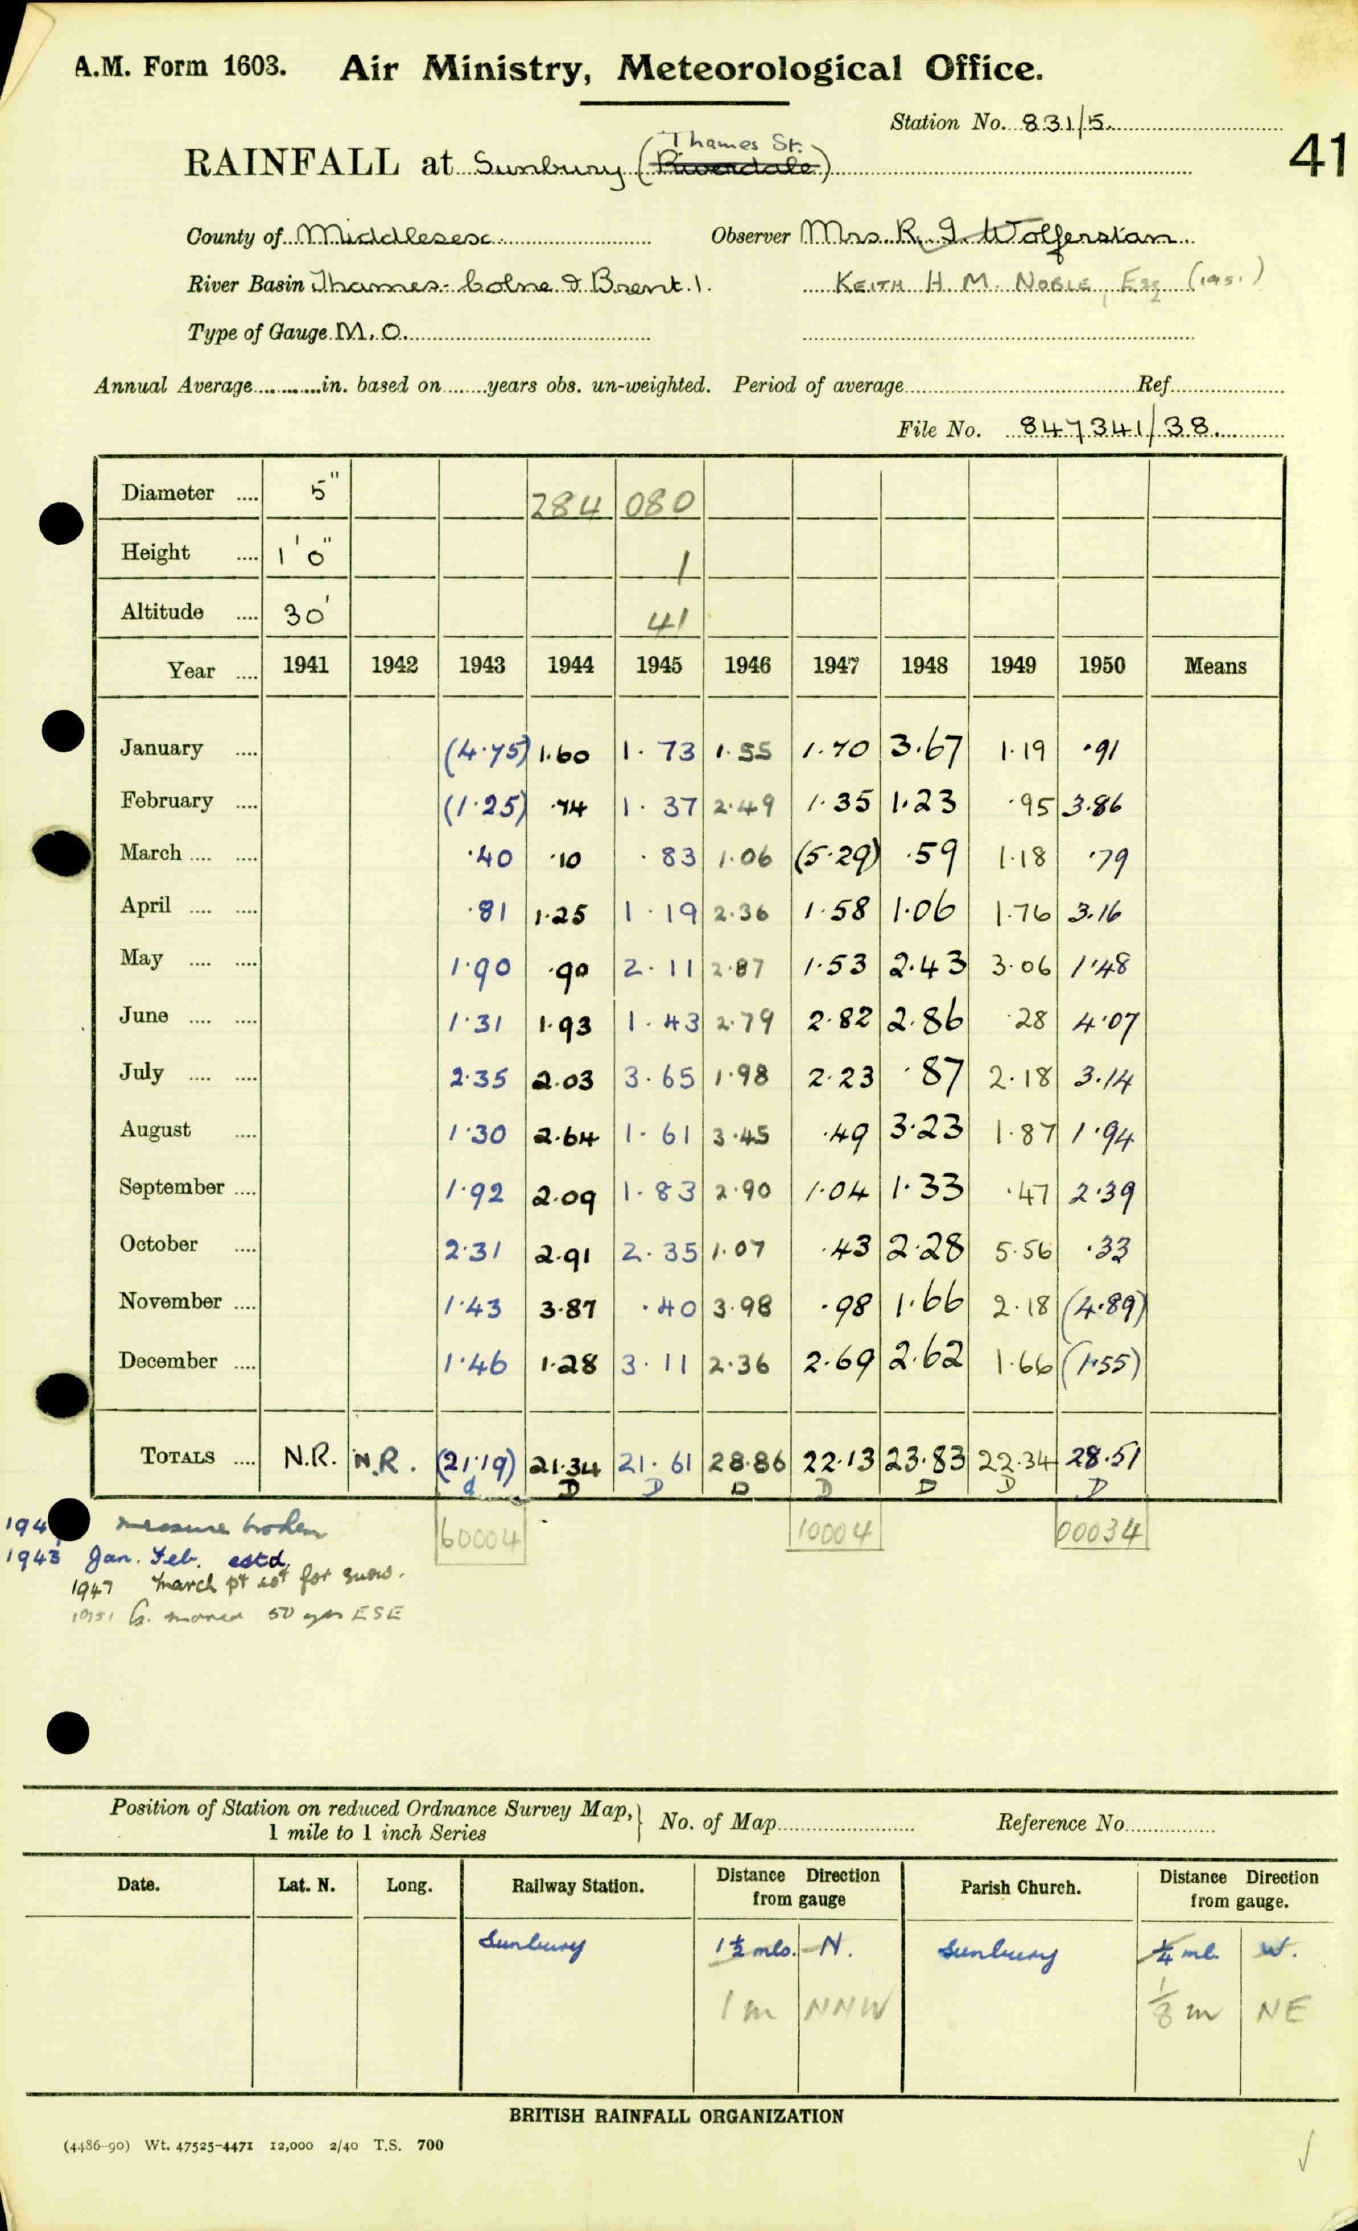 A.M. Form 1603. Air Ministry, Meteorological Office.
Station No. 831/5.
41
Thames St.
RAINFALL at Sunbury (Riverdale)
County of Middlesex Observer Mrs. R. I. Wolferstan
River Basin Thames - Colne & Brent. 1. KEITH H. M. NOBLE, Esq (1951)
Type of Gauge M.O.
Annual Average in. based on years obs. un-weighted. Period of average Ref.
File No. 847341/38.
Diameter 5" 284 080
Height 1' 0" 1
Altitude 30' 41
Year 1941 1942 1943 1944 1945 1946 1947 1948 1949 1950 Means
January (4.75) 1.60 1.73 1.55 1.70 3.67 1.19 .91
February (1.25) .74 1.37 2.49 1.35 1.23 .95 3.86
March .40 .10 .83 1.06 (5.29) .59 1.18 .79
April .81 1.25 1.19 2.36 1.58 1.06 1.76 3.16
May 1.90 .90 2.11 2.87 1.53 2.43 3.06 1.48
June 1.31 1.93 1.43 2.79 2.82 2.86 .28 4.07
July 2.35 2.03 3.65 1.98 2.23 .87 2.18 3.14
August 1.30 2.64 1.61 3.45 .49 3.23 1.87 1.94
September 1.92 2.09 1.83 2.90 1.04 1.33 .47 2.39
October 2.31 2.91 2.35 1.07 .43 2.28 5.56 .33
November 1.43 3.87 .40 3.98 .98 1.66 2.18 (4.89)
December 1.46 1.28 3.11 2.36 2.69 2.62 1.66 (1.55)
TOTALS N.R. N.R. (21.19) 21.34 21.61 28.86 22.13 23.83 22.34 28.51
d D D D D D D D
194 measure broken 60004 10004 00034
1943 Jan. Feb. estd.
1947 March pt est for snow.
1951 G. moved 50 yds ESE
Position of Station on reduced Ordnance Survey Map, No. of Map Reference No.
1 mile to 1 inch Series
Date. Lat. N. Long. Railway Station. Distance Direction from gauge Parish Church. Distance Direction from gauge.
Sunbury 1½ mls. N. Sunbury ¼ ml. W.
1 m NNW ⅛ m NE
BRITISH RAINFALL ORGANIZATION
(4486-90) Wt. 47525-4471 12,000 2/40 T.S. 700